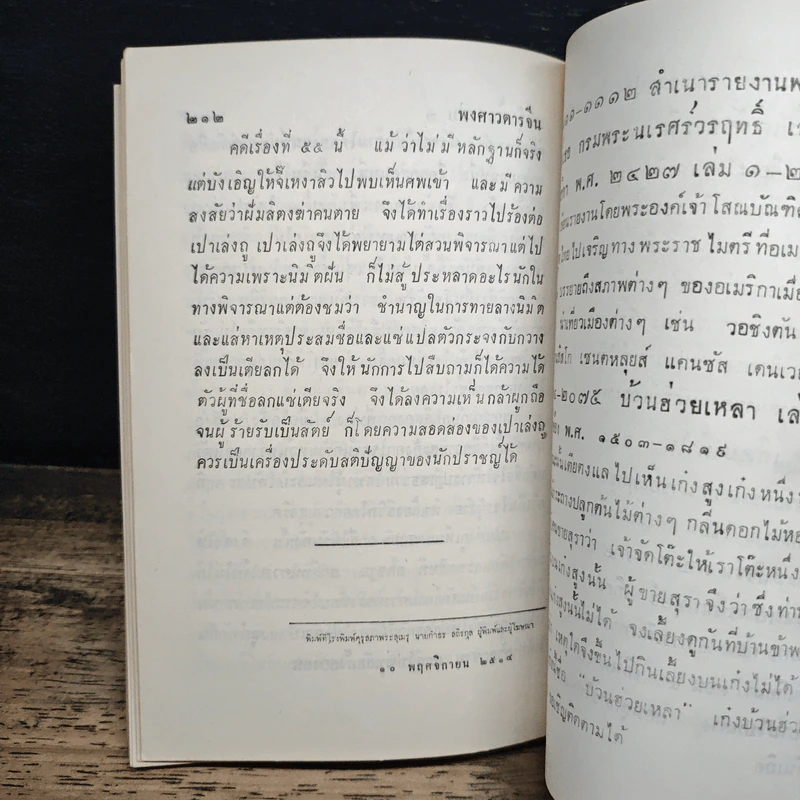 ๒๑๒
พงศาวดารจีน
คดีเรื่องที่ ๕๕ นี้ แม้ว่าไม่มีหลักฐานก็จริง
แต่บังเอิญให้จี๊เหงาสิวไปพบเห็นศพเข้า และมีความ
ลงสัยว่าฝั่มลิตงฆ่าคนตาย จึงได้ทำเรื่องราวไปร้องต่อ
เปาเล่งถู เปาเล่งถูจึงได้พยายามไต่สวนพิจารณาแต่ไป
ได้ความเพราะนิมิตฝัน ก็ไม่สู้ประหลาดอะไรนักใน
ทางพิจารณาแต่ต้องชมว่า ชำนาญในการทายลางนิมิต
และแส่หาเหตุประสมชื่อและแซ่แปลตัวกระจงกับกวาง
ลงเป็นเตียลกได้ จึงให้นักการไปสืบถามก็ได้ความได้
ตัวผู้ที่ชื่อลกแซ่เตียจริง จึงได้ลงความเห็นกล้าผูกถือ
จนผู้ร้ายรับเป็นสัตย์ ก็โดยความสอดส่องของเปาเล่งถู
ควรเป็นเครื่องประดับสติปัญญาของนักปราชญ์ได้
พิมพ์ที่โรงพิมพ์คุรุสภาพระสุเมรุ นายกำธร สถิรกุล ผู้พิมพ์และผู้โฆษณา
๑๐ พฤศจิกายน ๒๕๑๔
๑๑-๑๑๑๒ สำเนารายงาน
กรมพระนเรศร์วรฤทธิ์
พ.ศ. ๒๔๒๗ เล่ม ๑-๒
รายงานโดยพระองค์เจ้าโสณบัณฑิต
ไปเจริญทางพระราชไมตรีที่อเม
บรรยายถึงสภาพต่างๆ ของอเมริกาเมื่อ
เที่ยวเมืองต่างๆ เช่น วอชิงตัน
เซนตหลุยส์ แคนซัส เดนเว
-๒๐๗๕ บ้วนฮ่วยเหลา
พ.ศ. ๑๕๐๓-๑๘๑๙
นั้นเตียตงแลไปเห็นเก๋งสูงเก๋งหนึ่ง
ปลูกต้นไม้ต่างๆ กลิ่นดอกไม้หอ
ขายสุราว่า เจ้าจัดโต๊ะให้เราโต๊ะหนึ่ง
เก๋งสูงนั้น ผู้ขายสุราจึงว่าซึ่งท่า
เก๋งสูงนั้นไม่ได้ จงเลี้ยงดูกันที่บ้านข้าพ
เหตุใดจึงขึ้นไปกินเลี้ยงบนเก๋งไม่ได้
ชื่อ "บ้วนฮ่วยเหลา" เก๋งบ้วนฮ่ว
เชิญติดตามได้